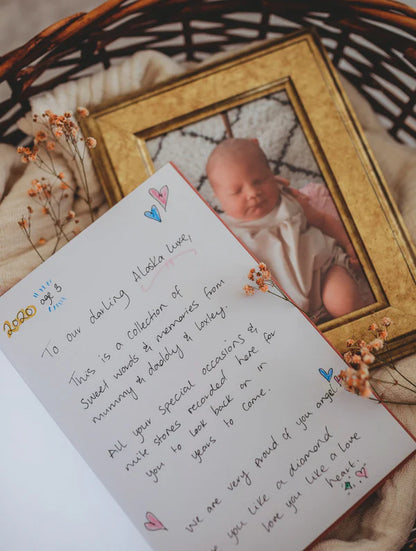 2020
age 3
To our darling Alaska luxe,
This is a collection of
Sweet words & memories from
mummy & daddy & loxley.
All your special occasions &
mile stones recorded here for
you to look back on in
years to come.
We are very proud of you angel,
you like a diamond
love you like a love
heart.